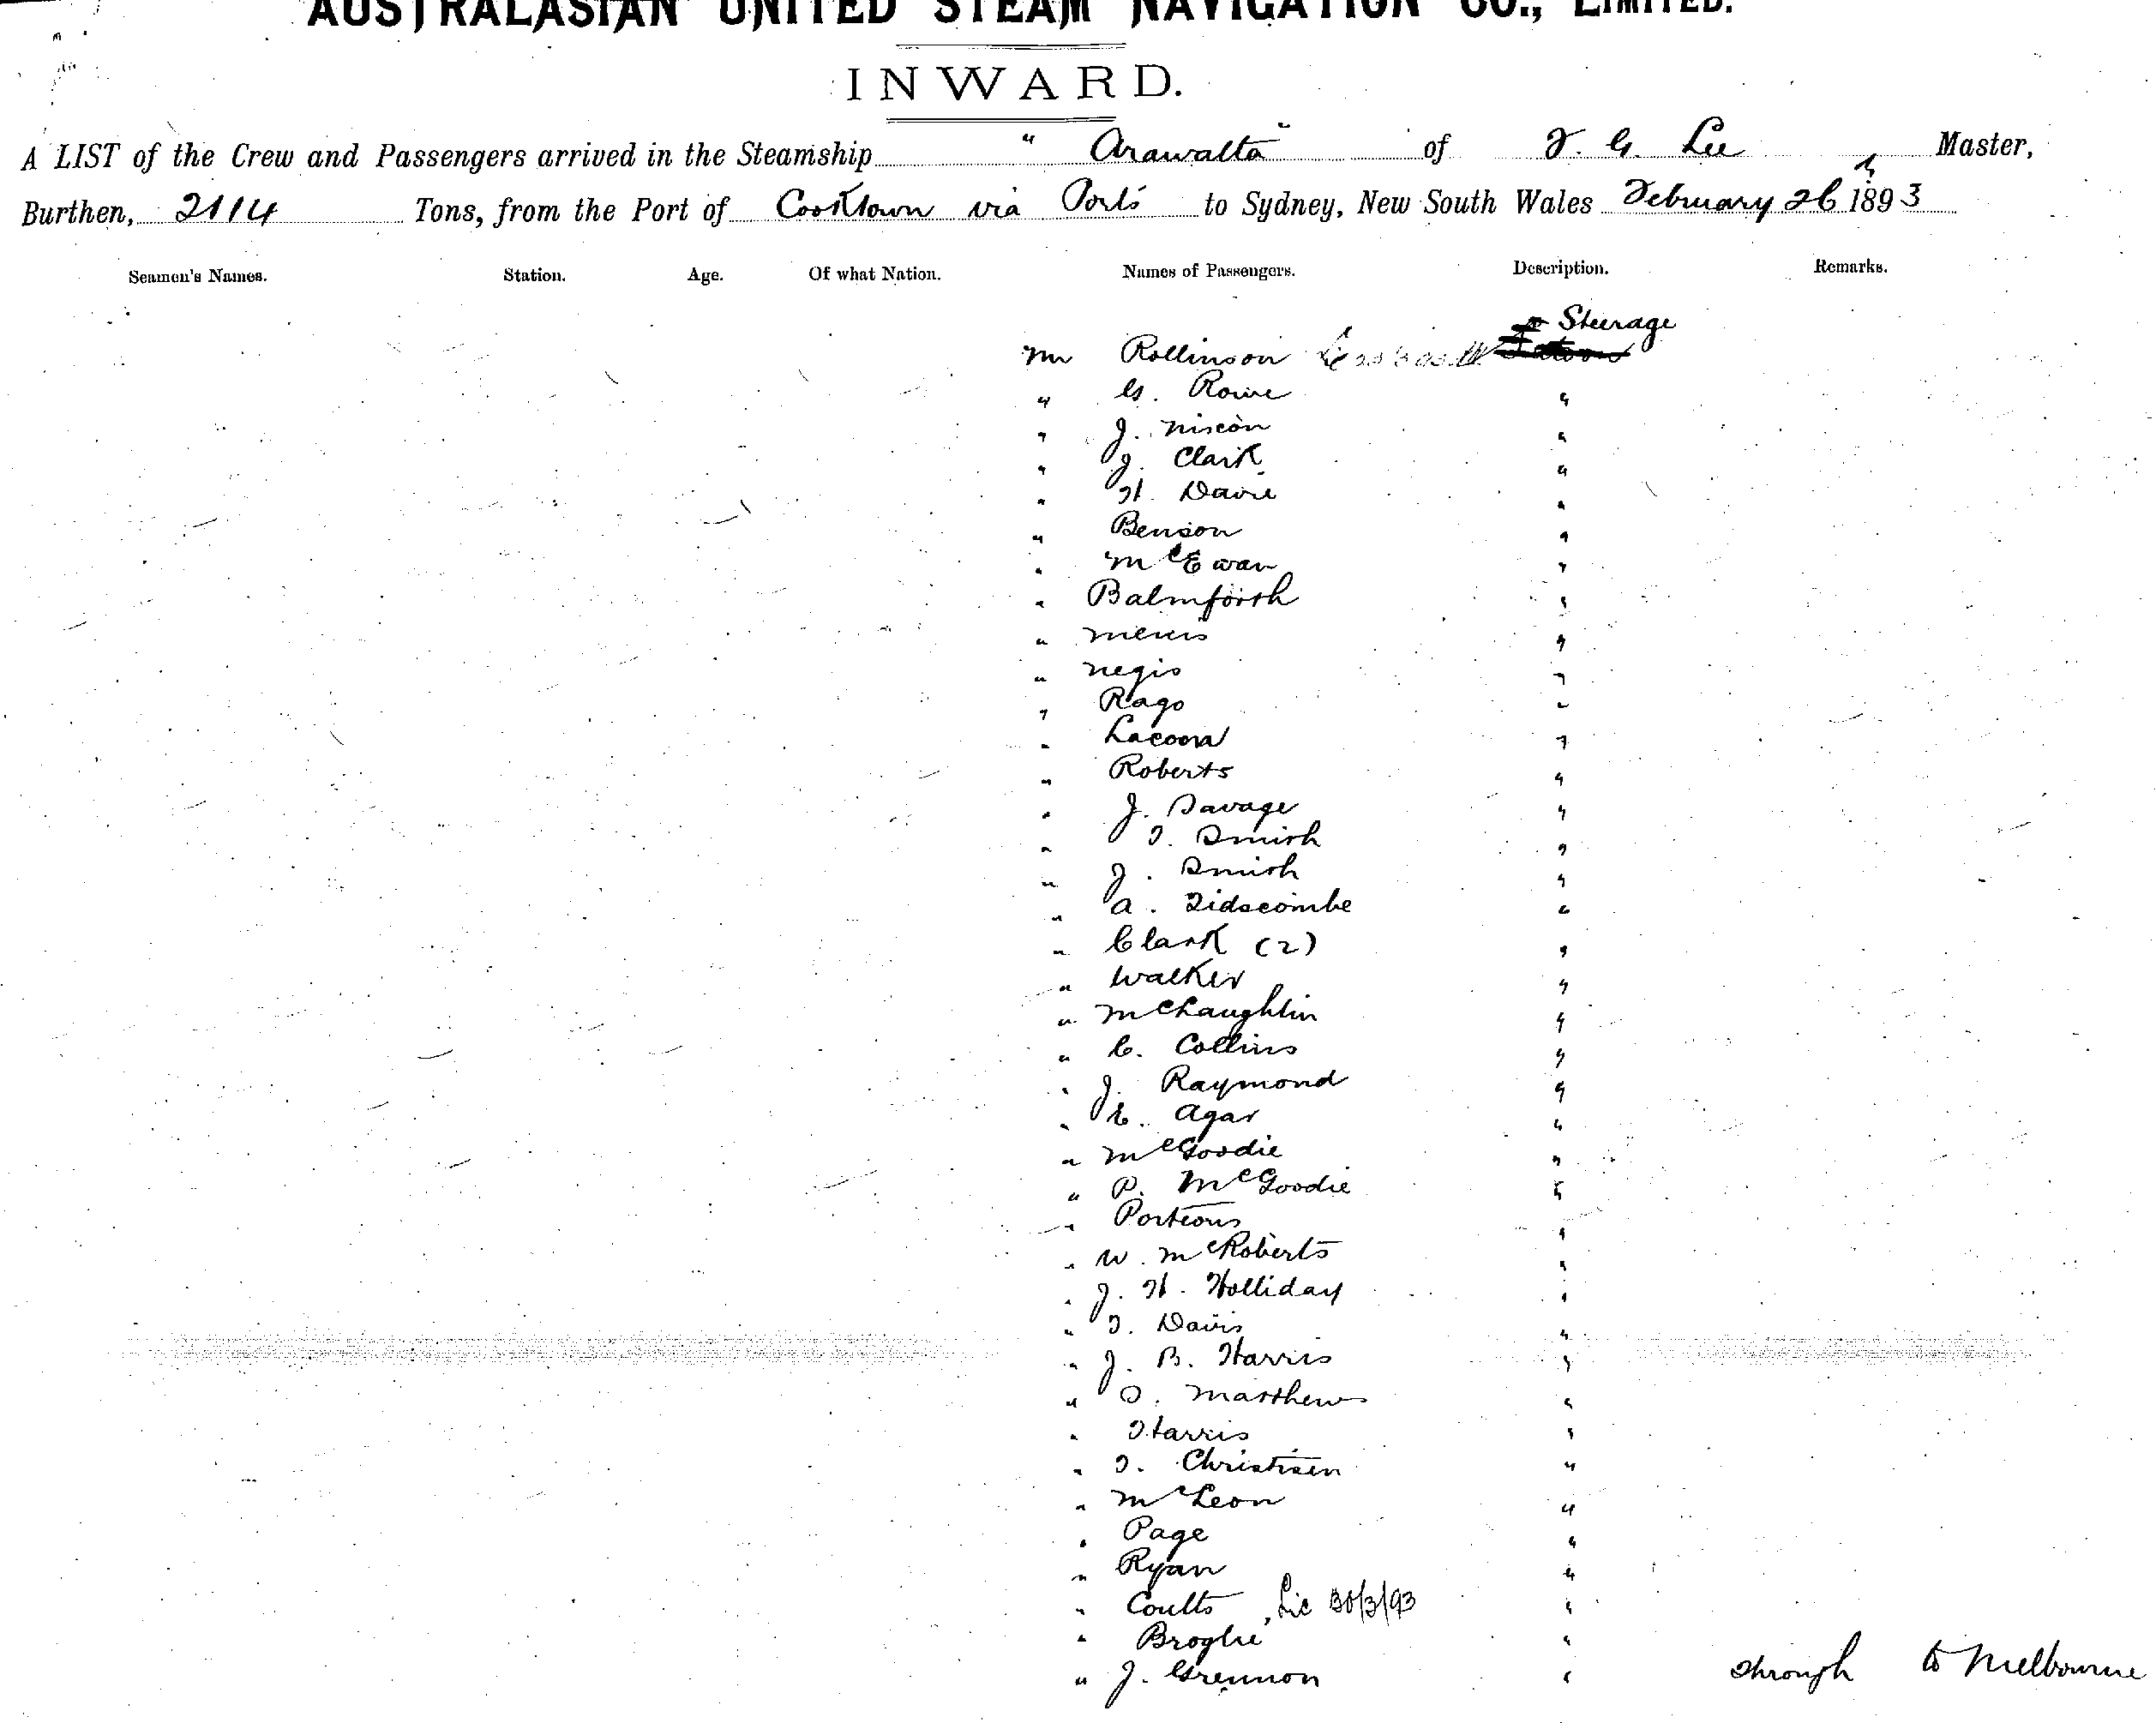 AUSTRALASIAN UNITED STEAM NAVIGATION CO., LIMITED.
INWARD.
A LIST of the Crew and Passengers arrived in the Steamship "Arawatta" of J. G. Lee Master,
Burthen, 2114 Tons, from the Port of Cooktown via Ports to Sydney, New South Wales February 26th 1893
Seamen's Names. Station. Age. Of what Nation. Names of Passengers. Description. Remarks.
Steerage
Mr Rollinson
" G. Rowe "
" J. Niscon "
" J. Clark "
" H. Davie "
" Benson "
" McEwan "
" Balmforth "
"
" Negis "
" Rago "
" Lacoona "
" Roberts "
" J. Savage "
" T. Smith "
" J. Smith "
" A. Tidscombe "
" Clark (2) "
" Walker "
" McLaughlin "
" C. Collins "
" J. Raymond "
" E. Agar "
" McGoodie "
" P. McGoodie "
" Porteous "
" W. McRoberts "
" J. H. Holliday "
" T. Davis "
" J. B. Harris "
" O. Matthews "
" Harris "
" T. Christisen "
" McLeon "
" Page "
" Ryan "
" Coults Lic 30/3/93 "
" Broglie "
" J. Grennon " through to Melbourne